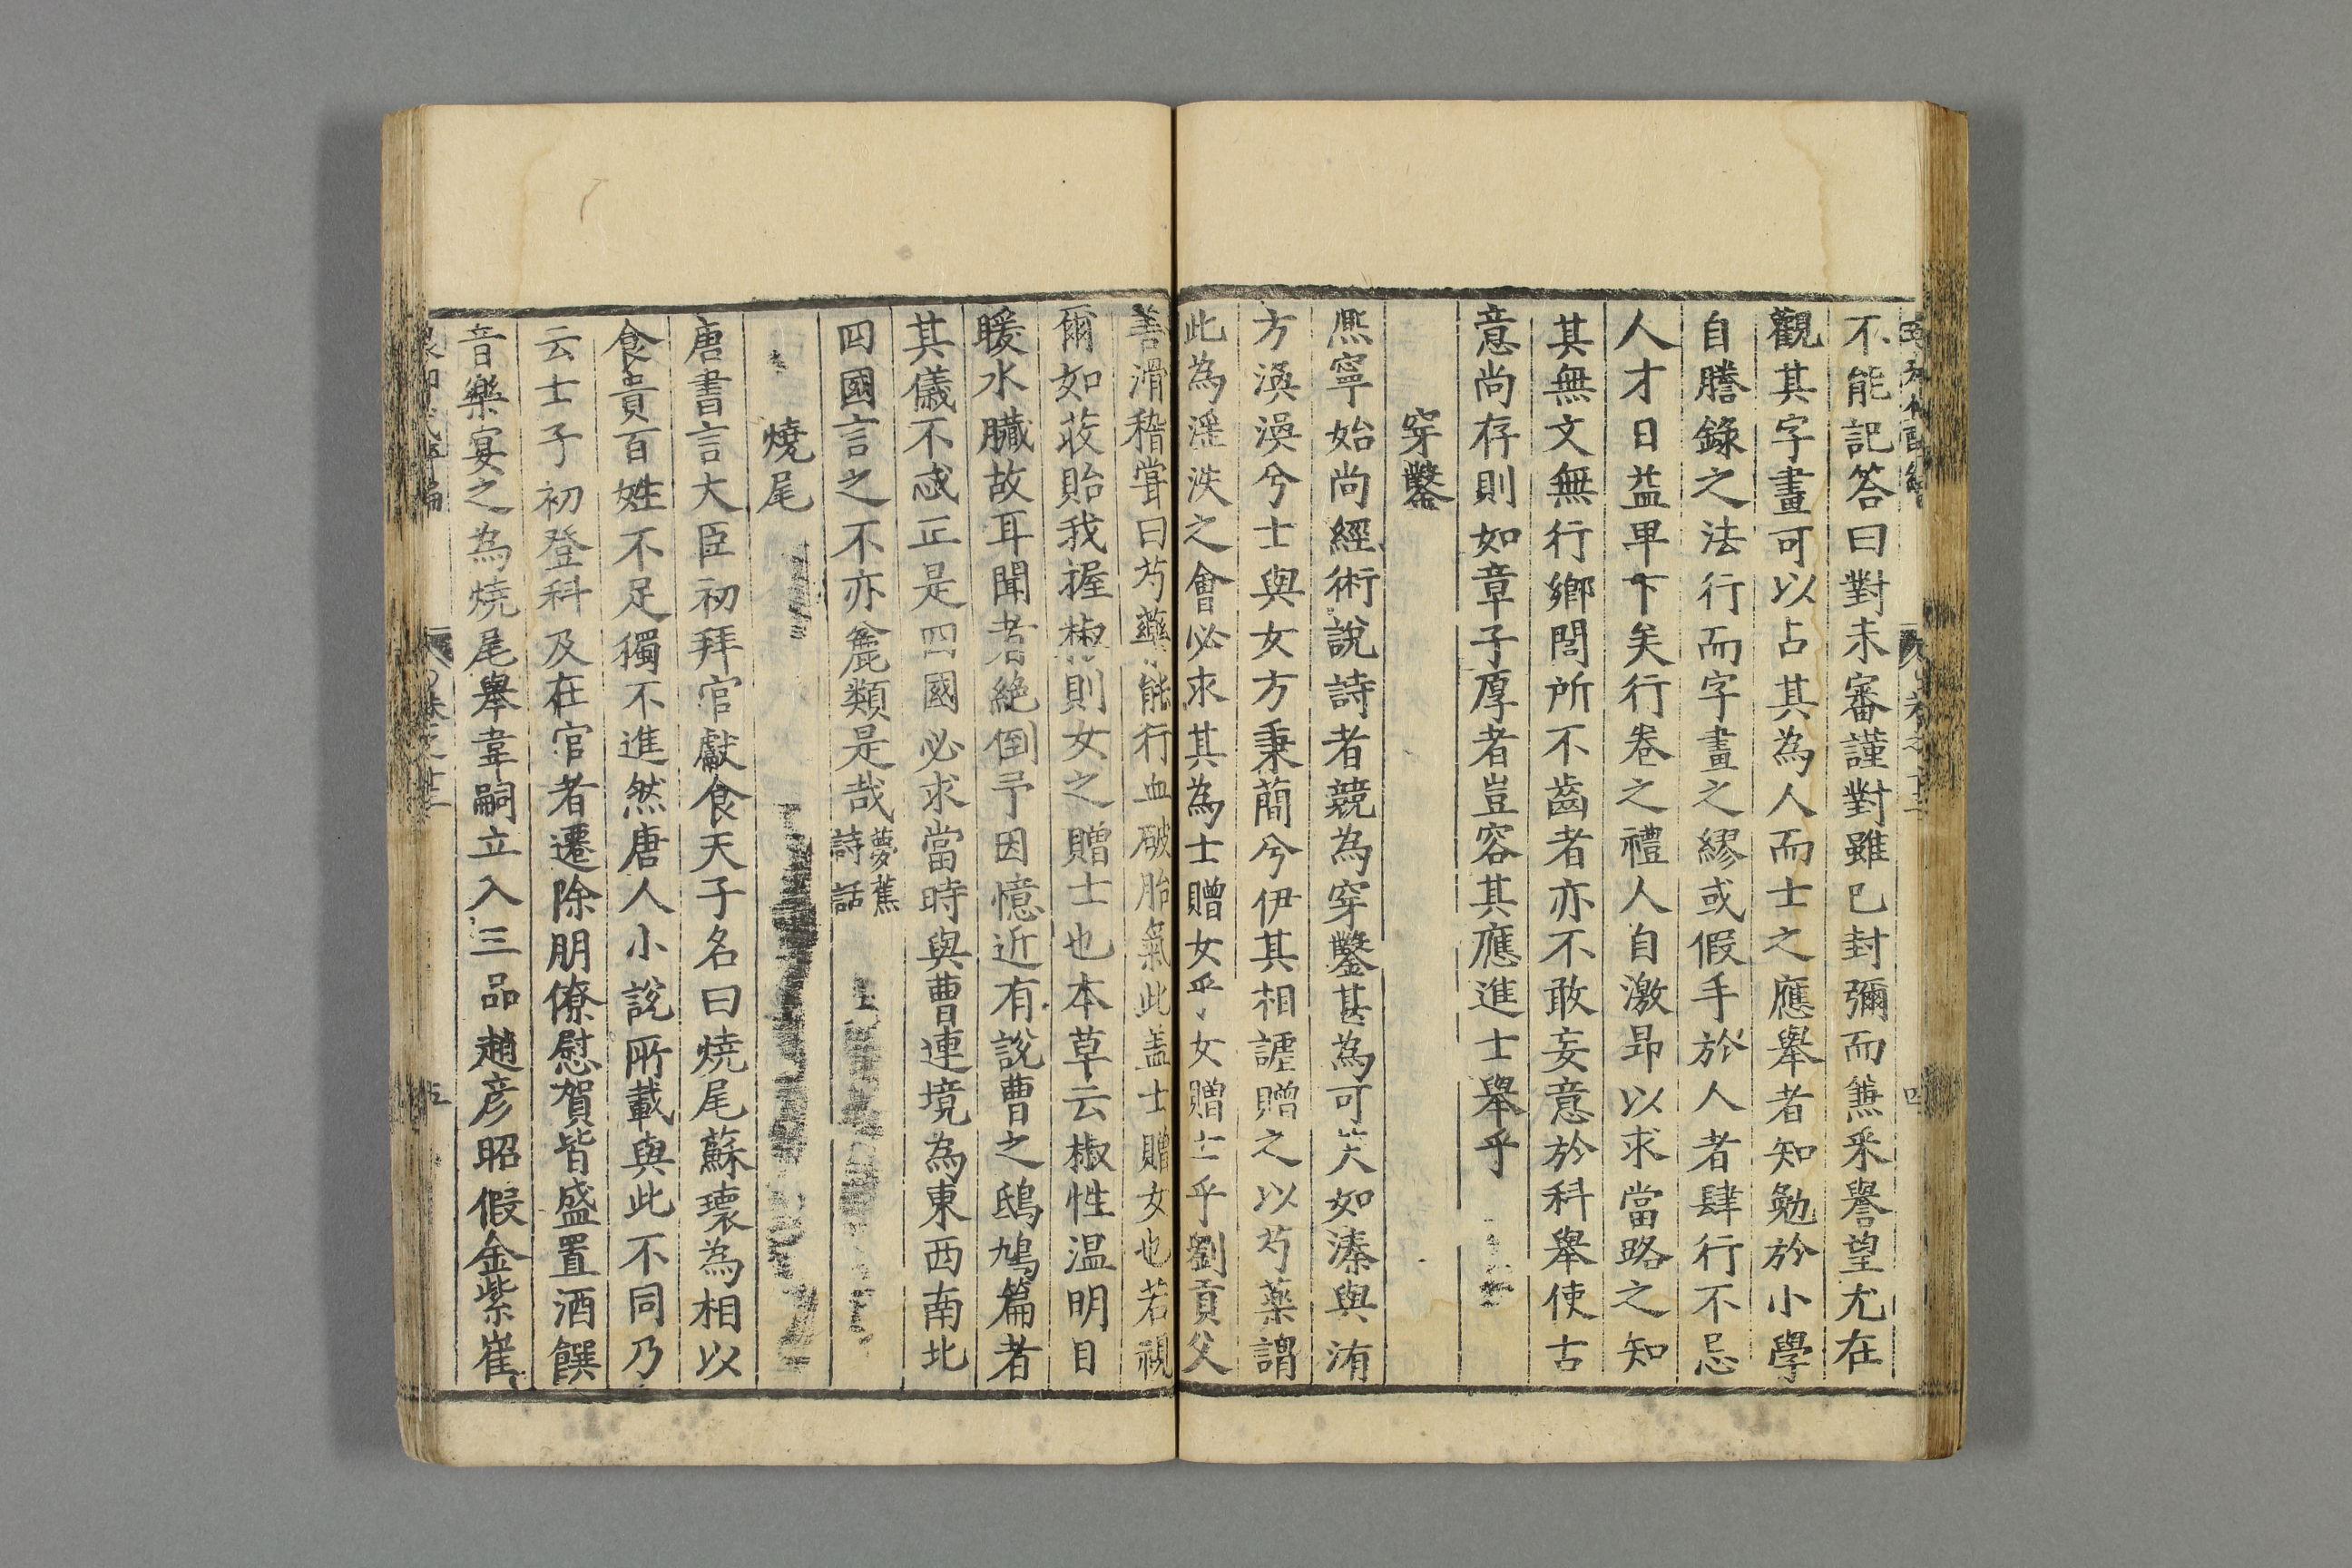 不能記答曰對未審謹對雖已封彌而兼采譽望尤在
觀其字畫可以占其為人而士之應舉者知勉於小學
自謄錄之法行而字畫之繆或假手於人者肆行不忌
人才日益卑下矣行卷之禮人自激昻以求當路之知
其無文無行鄉閭所不齒者亦不敢妄意於科舉使古
意尚存則如章子厚者豈容其應進士舉乎
穿鑿
熈寧始尚經術說詩者競為穿鑿甚為可笑如溱與洧
方渙渙兮士與女方秉蕑兮伊其相謔贈之以芍薬謂
此為淫泆之會必求其為士贈女乎女贈士乎劉貢父
善滑稽嘗曰芍藥能行血破胎氣此盖士贈女也若視
爾如荍貽我握椒則女之贈士也本草云椒性温明目
暖水臓故耳聞者絶倒予因憶近有說曹之鳲鳩篇者
其儀不忒正是四國必求當時與曹連境為東西南北
四國言之不亦麄類是哉夢蕉詩話
燒尾
唐書言大臣初拜官獻食天子名曰燒尾蘇瓌為相以
食貴百姓不足獨不進然唐人小說所載與此不同乃
云士子初登科及在官者遷除朋僚慰賀皆盛置酒饌
音樂宴之為燒尾舉韋嗣立入三品趙彦昭假金紫崔